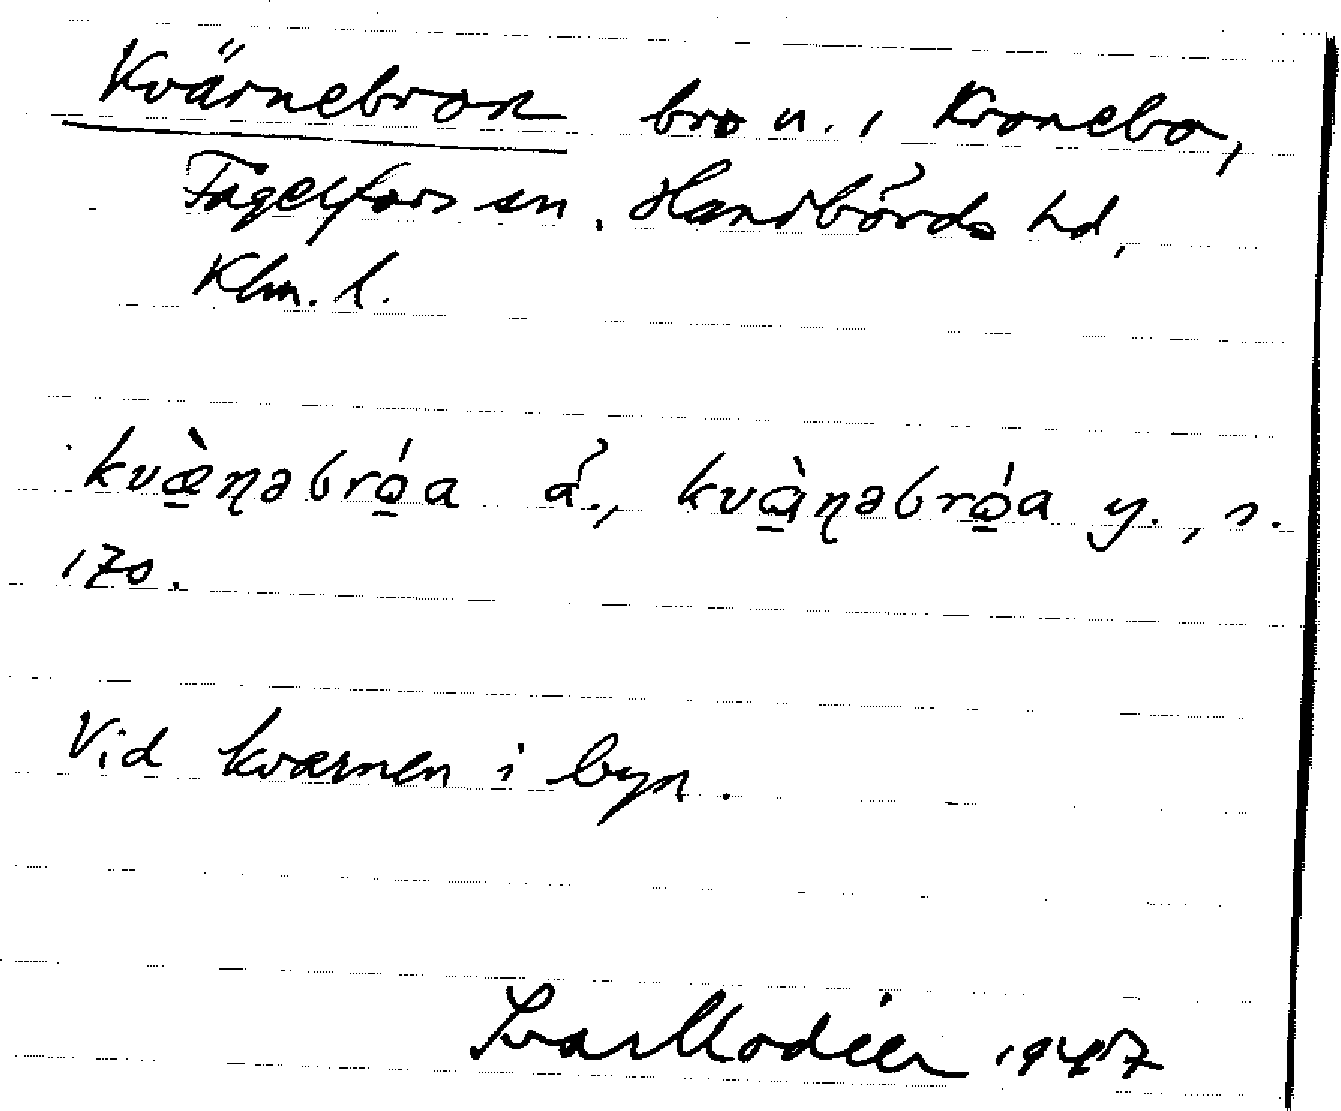 Kvärnebron bro n. i Kronebo,
Fågelfors sn, Handbörds hd,
Klm. l.
kvæ̀ɳəbrǫ́a ä., kvɑ̀ɳəbrǫ́a y., s.
170.
Vid kvarnen i byn.
Ivar Modéer 1947